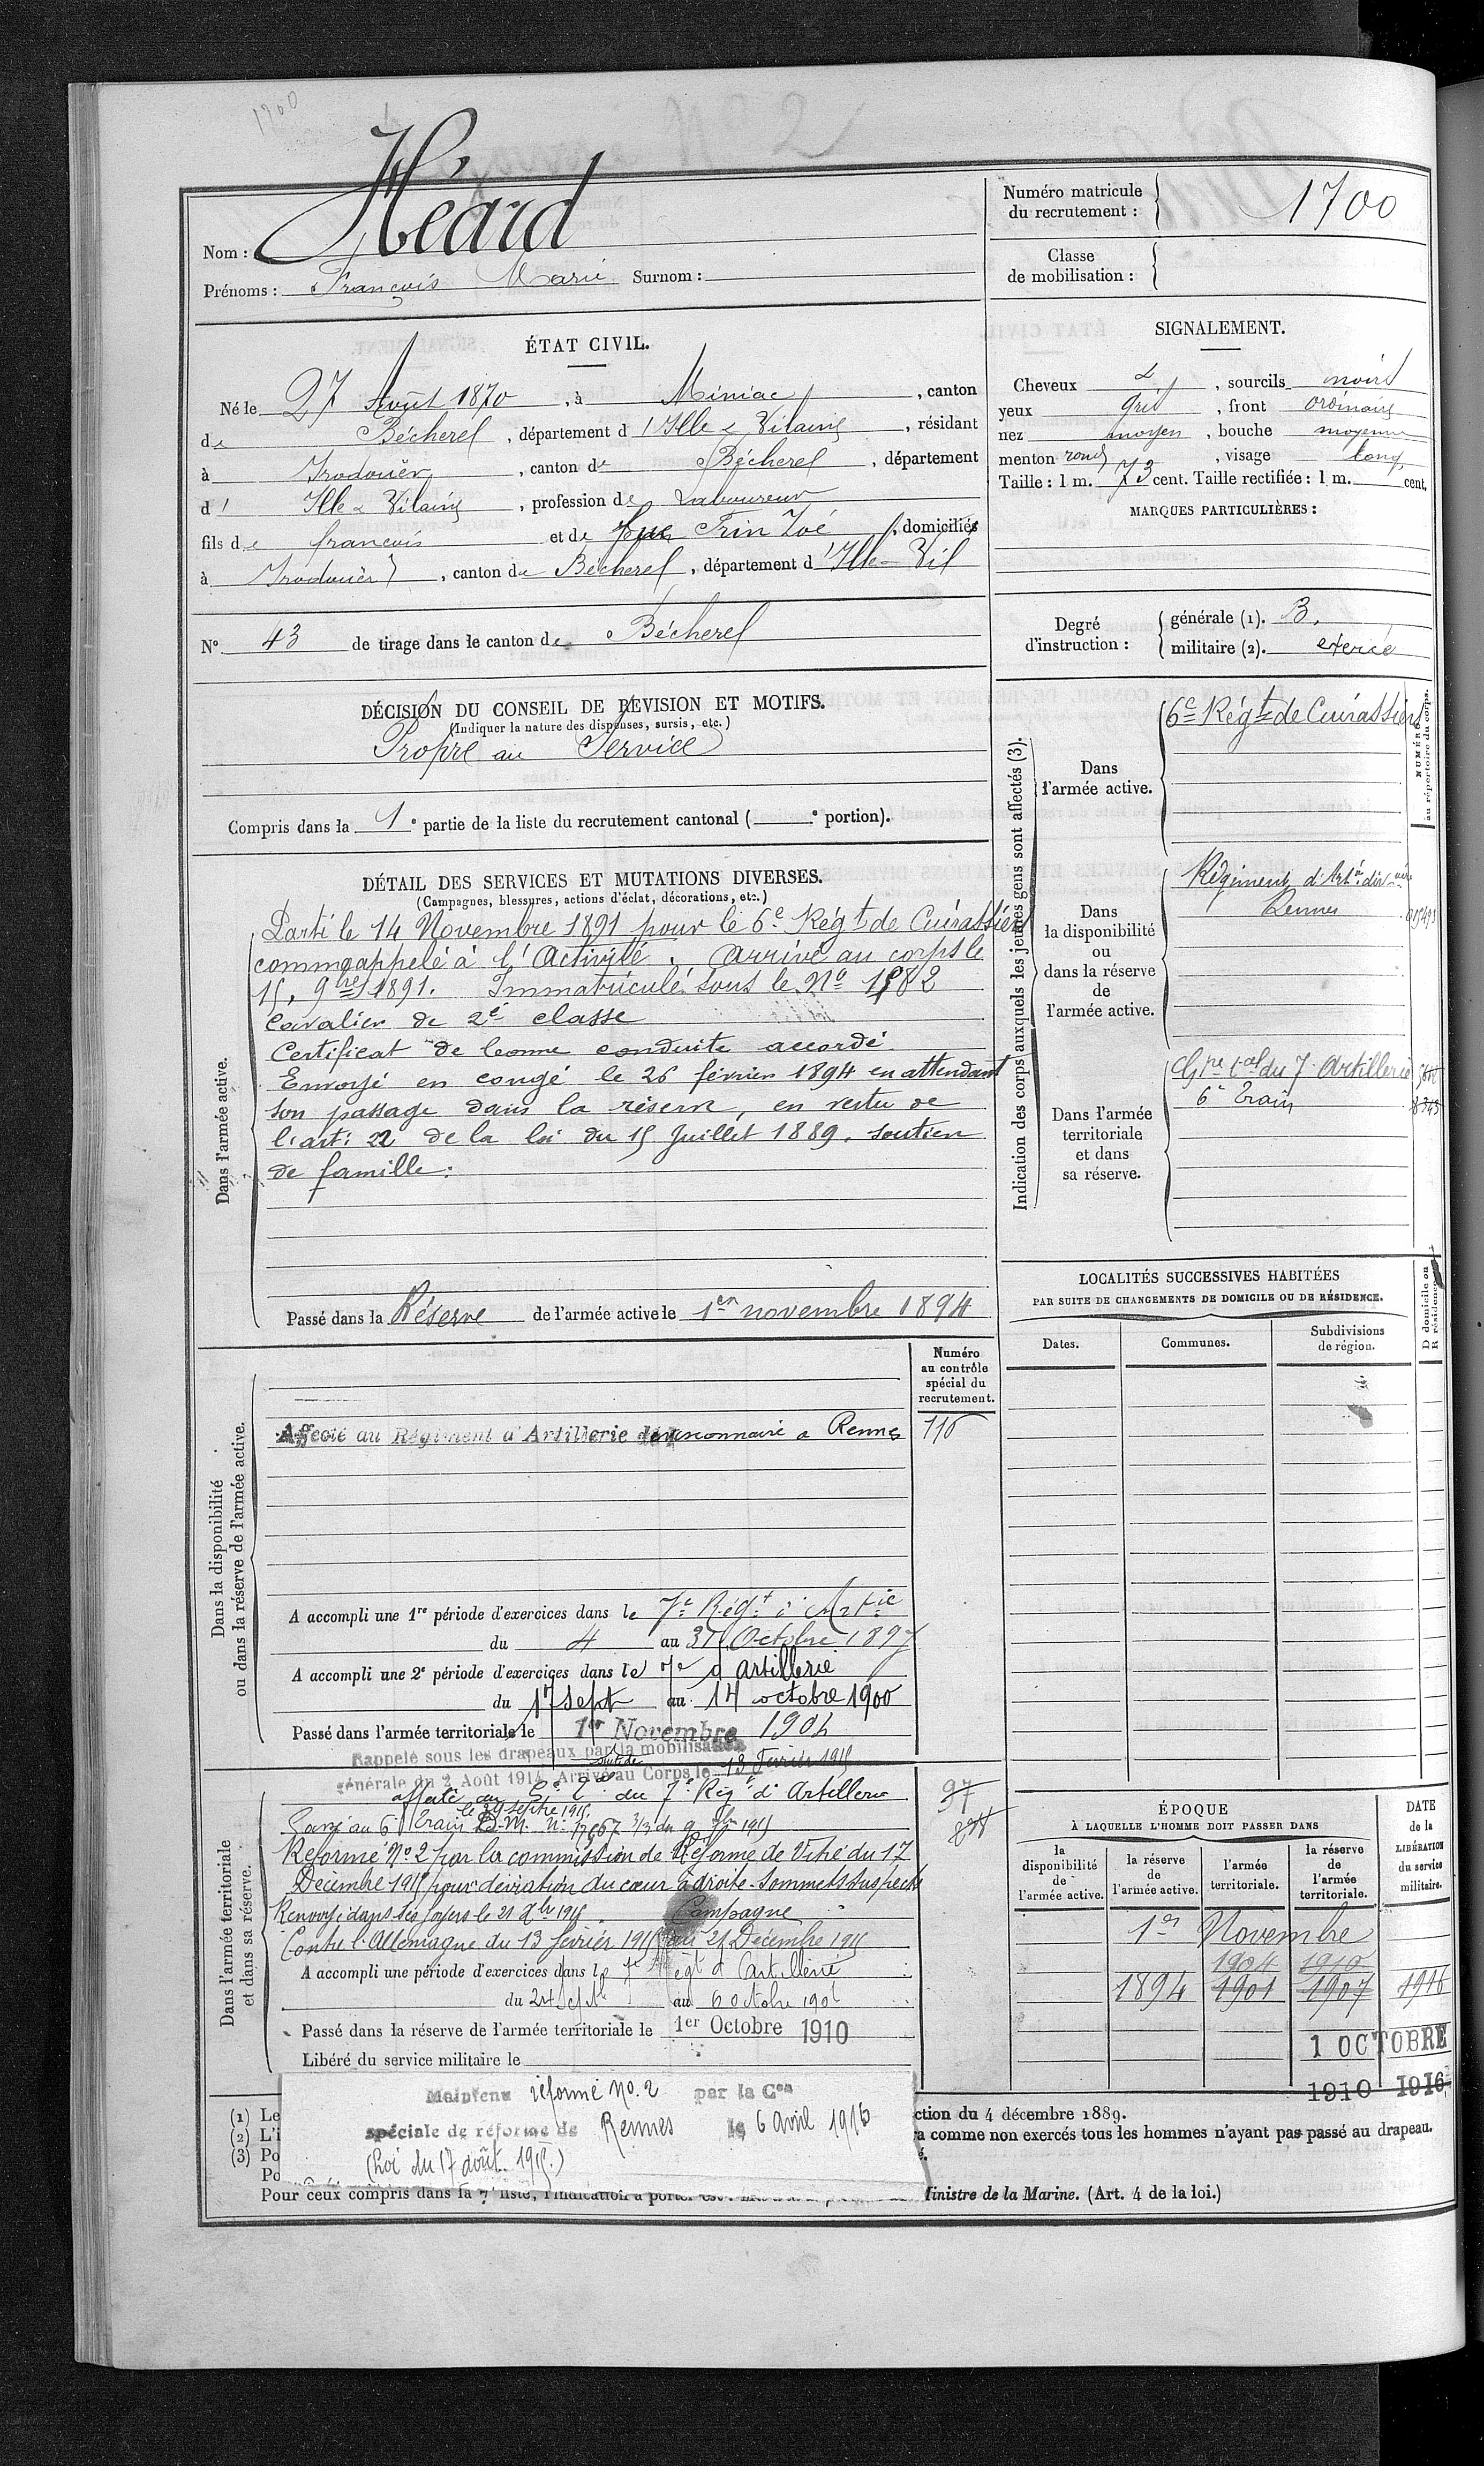 1700
Nom : Héard
Prénoms : François Marie Surnom :
Numéro matricule
du recrutement : 1700
Classe
de mobilisation :
ÉTAT CIVIL.
Né le 27 Août 1870, à Miniac, canton
de Bécherel, département d'Ille & Vilaine, résidant
à Irodouër, canton de Bécherel, département
d' Ille & Vilaine, profession de Laboureur
fils de françois et de Trin Zoé, domiciliés
à Irodouër, canton de Bécherel, département d'Ille-Vil
N° 43 de tirage dans le canton de Bécherel
SIGNALEMENT.
Cheveux &, sourcils noirs
yeux gris, front ordinaire
nez moyen, bouche moyenne
menton rond, visage long
Taille : 1 m. 73 cent. Taille rectifiée : 1 m. cent.
MARQUES PARTICULIÈRES :
Degré
d'instruction :
générale (1). B.
militaire (2). exercé
DÉCISION DU CONSEIL DE REVISION ET MOTIFS.
(Indiquer la nature des dispenses, sursis, etc.)
Propre au Service
Compris dans la 1e partie de la liste du recrutement cantonal ( e portion).
DÉTAIL DES SERVICES ET MUTATIONS DIVERSES.
(Campagnes, blessures, actions d'éclat, décorations, etc.)
Dans l'armée active.
Parti le 14 Novembre 1891 pour le 6e Régt de Cuirassiers
comme appelé à l'Activité. Arrivé au corps le
15, 9bre 1891. Immatriculé sous le No 1982
Cavalier de 2e classe
Certificat de bonne conduite accordé.
Envoyé en congé le 26 février 1894 en attendant
son passage dans la réserve, en vertu de
l'art: 22 de la loi du 15 Juillet 1889. soutien
de famille.
Passé dans la Réserve de l'armée active le 1er novembre 1894
Indication des corps auxquels les jeunes gens sont affectés (3).
NUMÉRO
au répertoire du corps.
Dans
l'armée active.
6e Régt de Cuirassiers
Dans
la disponibilité
ou
dans la réserve
de
l'armée active.
Régiment d'Artie divre
Rennes
Dans l'armée
territoriale
et dans
sa réserve.
Gpe tal du 7 Artillerie
6e Train
LOCALITÉS SUCCESSIVES HABITÉES
PAR SUITE DE CHANGEMENTS DE DOMICILE OU DE RÉSIDENCE.
Dates.
Communes.
Subdivisions
de région.
D domicile ou
R résidence
Dans la disponibilité
ou dans la réserve de l'armée active.
Numéro
au contrôle
spécial du
recrutement.
Affecté au Régiment d'Artillerie divisionnaire à Rennes 116
A accompli une 1re période d'exercices dans le 7e Régt d'Artie
du 4 au 31 Octobre 1897
A accompli une 2e période d'exercices dans le 7e d'artillerie
du 17 sept au 14 octobre 1900
Passé dans l'armée territoriale le 1er Novembre 1904
Rappelé sous les drapeaux par la mobilisation
générale du 2 Août 1914 Arrivé au Corps le 13 Février 1915
Dans l'armée territoriale
et dans sa réserve.
affecté au du 7e Régt d'Artillerie 97
le 29 septre 1915
Passé au 6e Train
Réformé No 2 par la commission de Réforme de Vitré du 17
Décembre 1915 pour déviation du cœur à droite - Sommets suspects
Renvoyé dans ses foyers le 21 Xbre 1915 Campagne
Contre l'Allemagne du 13 février 1915 au 21 Décembre 1915
A accompli une période d'exercices dans le 7e Régt d'artillerie
du 24 Sept au 6 octobre 1906
Passé dans la réserve de l'armée territoriale le 1er Octobre 1910
Libéré du service militaire le
ÉPOQUE
À LAQUELLE L'HOMME DOIT PASSER DANS
DATE
de la
LIBÉRATION
du service
militaire.
la
disponibilité
de
l'armée active.
la réserve
de
l'armée active.
l'armée
territoriale.
la réserve
de
l'armée
territoriale.
1er Novembre
1904 1910
1894 1901 1907 1916
1 OCTOBRE
1910 1916
Maintenu réformé No. 2 par la Con
spéciale de réforme de Rennes le 6 avril 1916
(Loi du 17 août 1915.)
(1) Le
ction du 4 décembre 1889.
(2) L'i
a comme non exercés tous les hommes n'ayant pas passé au drapeau.
(3) Po
Po
Pour ceux compris dans la 7e liste, l'indication à porter est
Ministre de la Marine. (Art. 4 de la loi.)